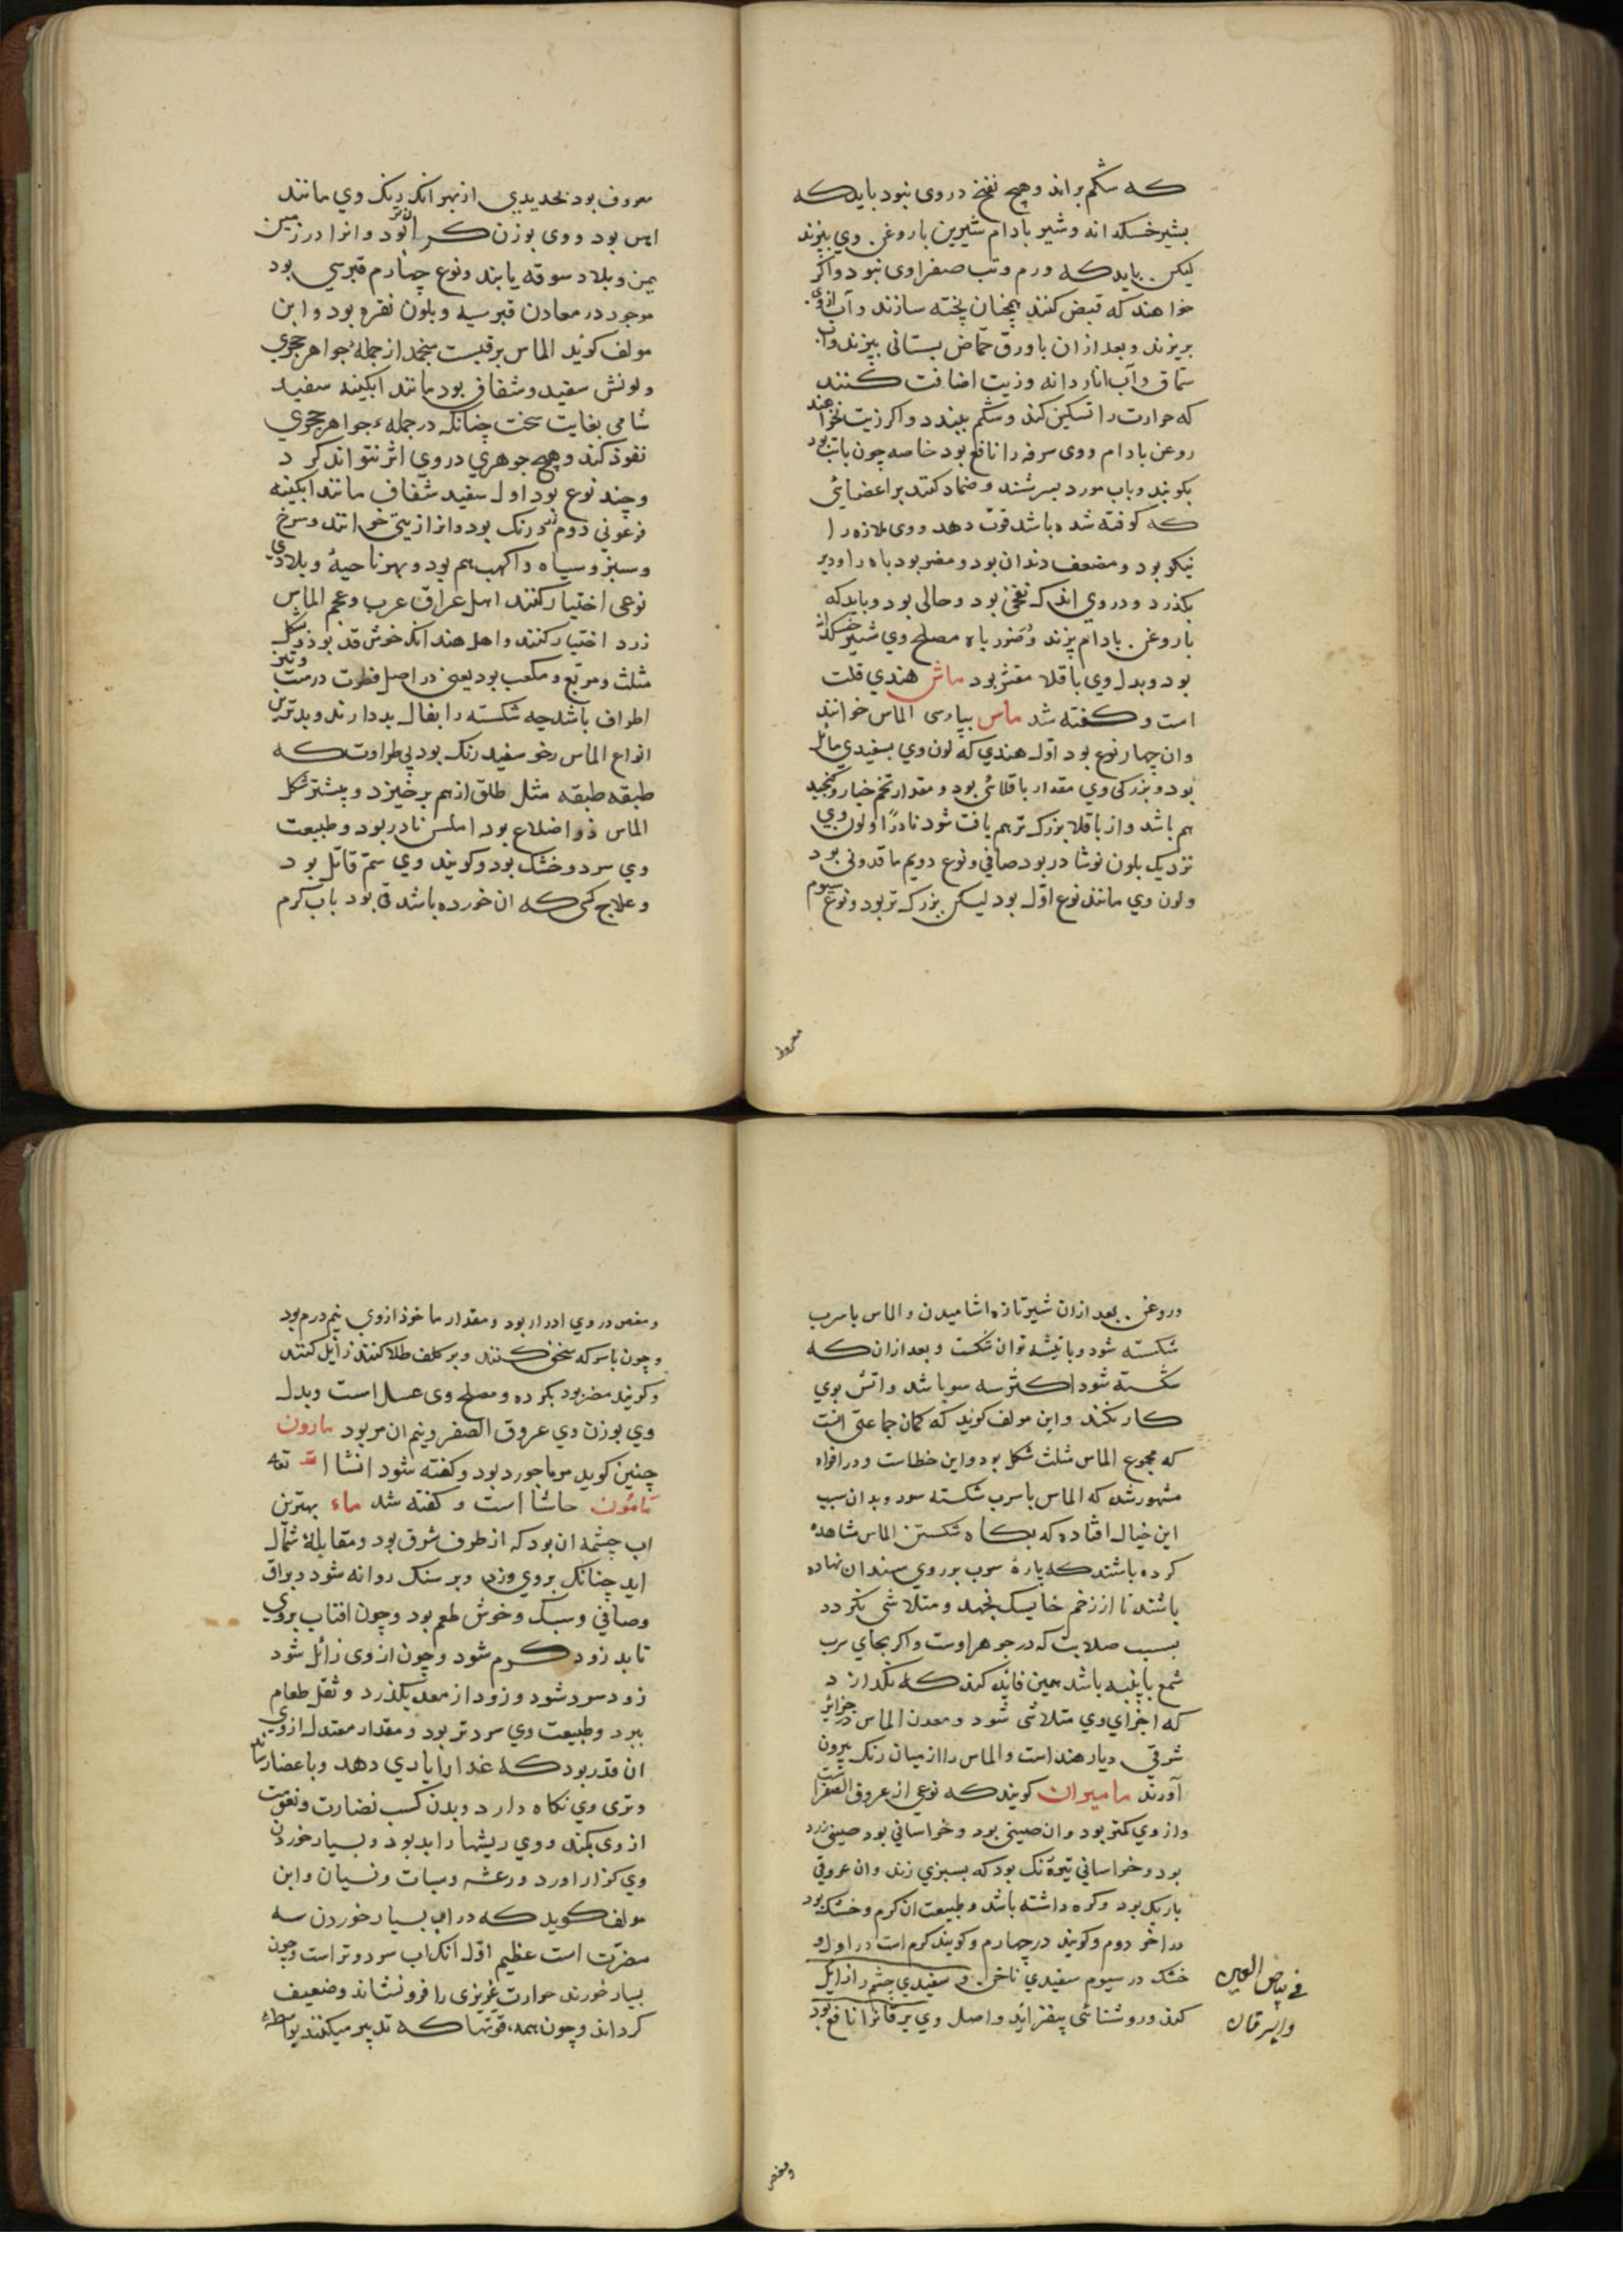 که شکم براند و هیچ نفخ در وی نبود باید که
بشیر خسکدانه و شیر بادام شیرین با روغن وی بپزند
لیکن باید که ورم و تب صفراوی نبود و اکر
خواهند که قبض کنند همچنان پخته سازند و آب ازوی
بریزند و بعد ازان با ورق حماض بستانی بپزند و آب
سماق و آب انار دانه و زیت اضافت کنند
که حرارت را تسکین کند و شکم ببندد و اکر زیت نخواهند
روغن بادام و وی سرفه را نافع بود خاصه چون باتب بود
بکوبند و باب مورد بسرشند و ضماد کنند بر اعضائی
که کوفته شده باشد قوت دهد و وی ملازه را
نیکو بود و مضعف دندان بود و مضر بود باه را و دیر
بکذرد و در وی اندک نفخی بود و حالی بود و باید که
با روغن بادام پزند و ضرر باه مصلح وی شیر خسکدانه
بود و بدل وی باقلا مقشر بود ماش هندی قلت
است و کفته شد ماس بپارسی الماس خوانند
و ان چهار نوع بود اول هندی که لون وی بسفیدی مائل
بود و بزرکی وی مقدار باقلائی بود و مقدار تخم خیار و کنجید
هم باشد و از باقلا بزرک تر هم یافت شود نادرًا و لون وی
نزدیک بلون نوشادر بود صافی و نوع دویم ماقدونی بود
و لون وی مانند نوع اول بود لیکن بزرک تر بود و نوع سیوم
معروف
معروف بود بحدیدی از بهر انکه رنک وی مانند
اهن بود و وی بوزن کران تر بود و انرا در زمین
یمن و بلاد سوقه یابند و نوع چهارم قبرسی بود
موجود در معادن قبرسیه و بلون نقره بود و ابن
مولف کوید الماس برقیست منجمد از جمله جواهر حجری
و لونش سفید و شفاف بود مانند ابکینه سفید
شامی بغایت سخت چنانکه در جمله جواهر حجری
نفوذ کند و هیچ جوهری در وی اثر نتواند کرد
و چند نوع بود اول سفید شفاف مانند ابکینه
فرعونی دوم زرد رنک بود و انرا زیتی خوانند و سرخ
و سبز و سیاه و اکهب هم بود و بهر ناحیهٔ و بلادی
نوعی اختیار کنند اهل عراق عرب و عجم الماس
زرد اختیار کنند و اهل هند انکه خوش قد بود و شکل
مثلث و مربع و مکعب بود یعنی در اصل فطرت درست و تیز
اطراف باشد چه شکسته را بفال بد دارند و بدترین
انواع الماس رخو سفید رنک بود بی طراوت که
طبقه طبقه مثل طلق از هم برخیزد و بیشتر شکل
الماس ذو اضلاع بود املس نادر بود و طبیعت
وی سرد و خشک بود و کویند وی سم قاتل بود
و علاج کسی که ان خورده باشد قی بود باب کرم
و روغن بعد ازان شیر تازه اشامیدن و الماس باسرب
شکسته شود و باتیشه توان شکست و بعد ازان که
شکسته شود اکثر سه سو باشد و اتش بوی
کار نکند و ابن مولف کوید که کمان جماعتی انست
که مجموع الماس مثلث شکل بود و این خطاست و در افواه
مشهور شده که الماس باسرب شکسته سود و بدان سبب
این خیال افتاده که بکاه شکستن الماس مشاهده
کرده باشند که پارهٔ سرب بر روی سندان نهاده
باشند تا از زخم خایسک نجهد و متلاشی نکردد
بسبب صلابت که در جوهر اوست و اکر بجای سرب
شمع یا پنبه باشد همین فائده کند که نکذارد
که اجزای وی متلاشی شود و معدن الماس در جزائر
شرقی دیار هند است و الماس را از میان رنک بیرون
آورند مامیران کویند که نوعی از عروق الصفراست
و ازوی کمتر بود و ان صینی بود و خراسانی بود صینی زرد
بود و خراسانی تیره رنک بود که بسبزی زند و ان عروقی
باریک بود و کره داشته باشد و طبیعت ان کرم و خشک بود
در اخر دوم و کویند در چهارم و کویند کرم است در اول و
خشک در سیوم سفیدی ناخن و سفیدی چشم را زایل
کند و روشنائی بیفزاید و اصل وی یرقانرا نافع بود
فی بیاض العین
والیرقان
ومغص
و مغص در وی ادرار بود و مقدار ماخوذ ازوی نیم درم بود
و چون باسرکه سحق کنند و بر کلف طلا کنند زایل کنند
و کویند مضر بود بکرده و مصلح وی عسل است و بدل
وی بوزن وی عروق الصفر و نیم ان مر بود مارون
چنین کوید مرماحور بود و کفته شود انشا الله تعه
مامون حاشا است و کفته شد ماء بهترین
اب چشمه ان بود که از طرف شرق بود و مقابلهٔ شمال
اید چنانک بروی وزد و بر سنک روانه شود و براق
و صافی و سبک و خوش طعم بود و چون افتاب بروی
تابد زود کرم شود و چون ازوی زائل شود
زود سرد شود و زود از معده بکذرد و ثقل طعام
ببرد و طبیعت وی سرد تر بود و مقدار معتدل ازوی
ان قدر بود که غدا را یاری دهد و باعضا رساند
و تری وی نکاه دارد و بدن کسب نضارت و نعومت
ازوی بکند و وی ریشها را بد بود و بسیار خوردن
وی کزاز اورد و رعشه و سبات و نسیان و ابن
مولف کوید که در اب بسیار خوردن سه
مضرت است عظیم اول انک اب سرد و تر است و چون
بسیار خورند حرارت غریزی را فرو نشاند و ضعیف
کرداند و چون همه قوتها که تدبیر میکنند بواسطهٔ